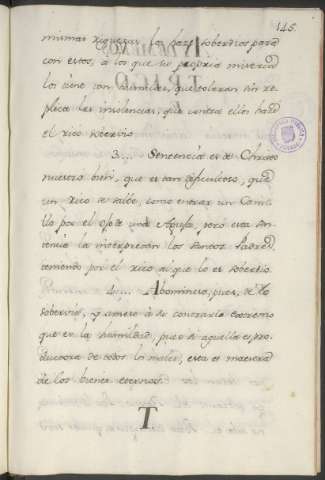 145.
mismas riquezas los haze soberbios para
con estos, à los que su propria miseria
los tiene tan humildes, que toleran sin re-
plica las insolencias, que contra ellos haze
el rico soberbio.
3... Sentencia es de Christo
nuestro bien, que es tan dificultoso, que
un Rico se salbe, como entrar un Came-
llo por el ojo de una Aguja, pero esta sen-
tencia la interpretan los Santos Padres,
teniendo por el rico al que lo es soberbio.
4... Abominemos, pues, de lo
soberbio, y amemos à su contrario extremo
que es la humildad, pues si aquella es pro-
ductora de todos los males, esta es maestra
de los bienes eternos.
T